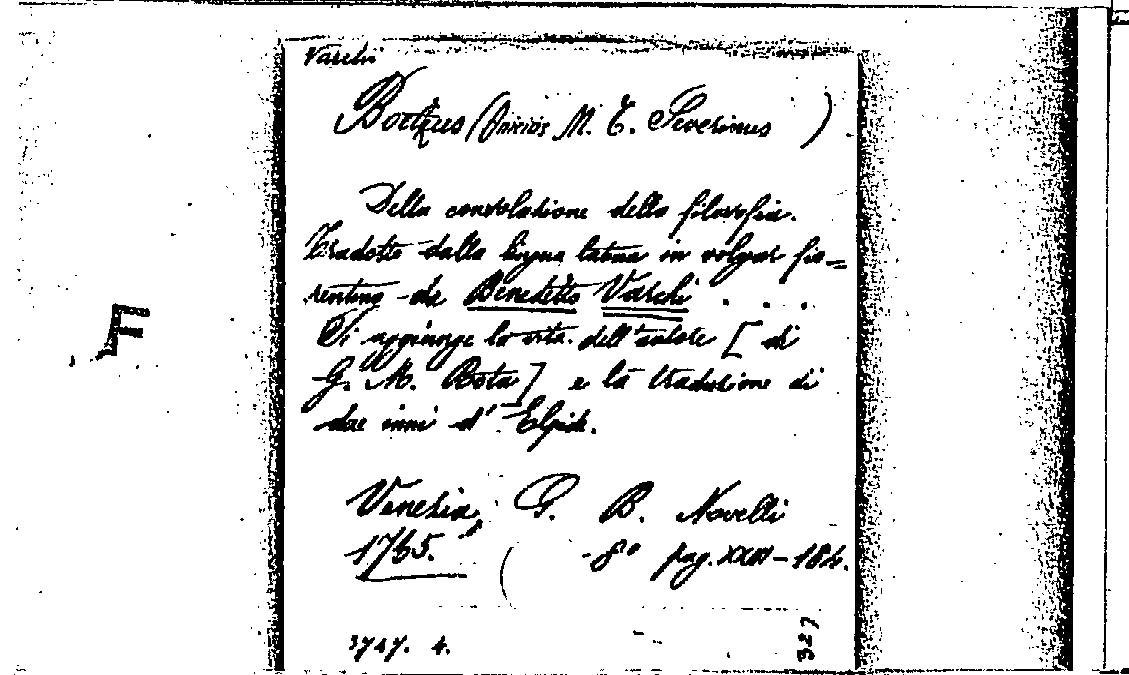 Varchi
Boetius (Anicius M. T. Severinus )
Della consolazione della filosofia.
Tradotto dalla lingua latina in volgar fio=
rentino da Benedetto Varchi . . .
Si aggiunge la vita dell'autore [ di
G. M. Rota ] e la traduzione di
due inni d' Elpide.
F
Venezia, G. B. Novelli
1765. ( - 8° pag. - 184.
3747. 4.
327